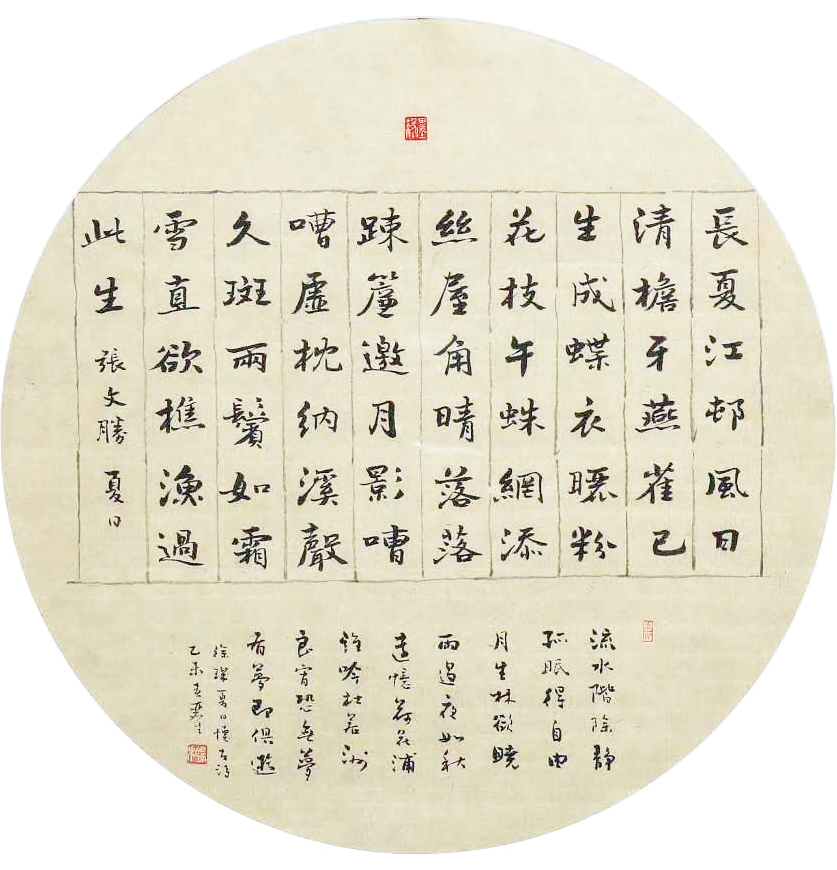 長夏江邨風日
清檐牙燕雀已
生成蝶衣曬粉
花枝午蛛網添
絲屋角晴落落
踈簾邀月影嘈
嘈虛枕納溪聲
久斑兩鬢如霜
雪直欲樵漁過
此生 張文勝 夏日
流水階除靜
孤眠得自由
月生林欲曉
雨過夜如秋
遠憶荷花浦
誰吟杜若洲
良宵恐無夢
有夢即俱遊
夏日懷
乙未